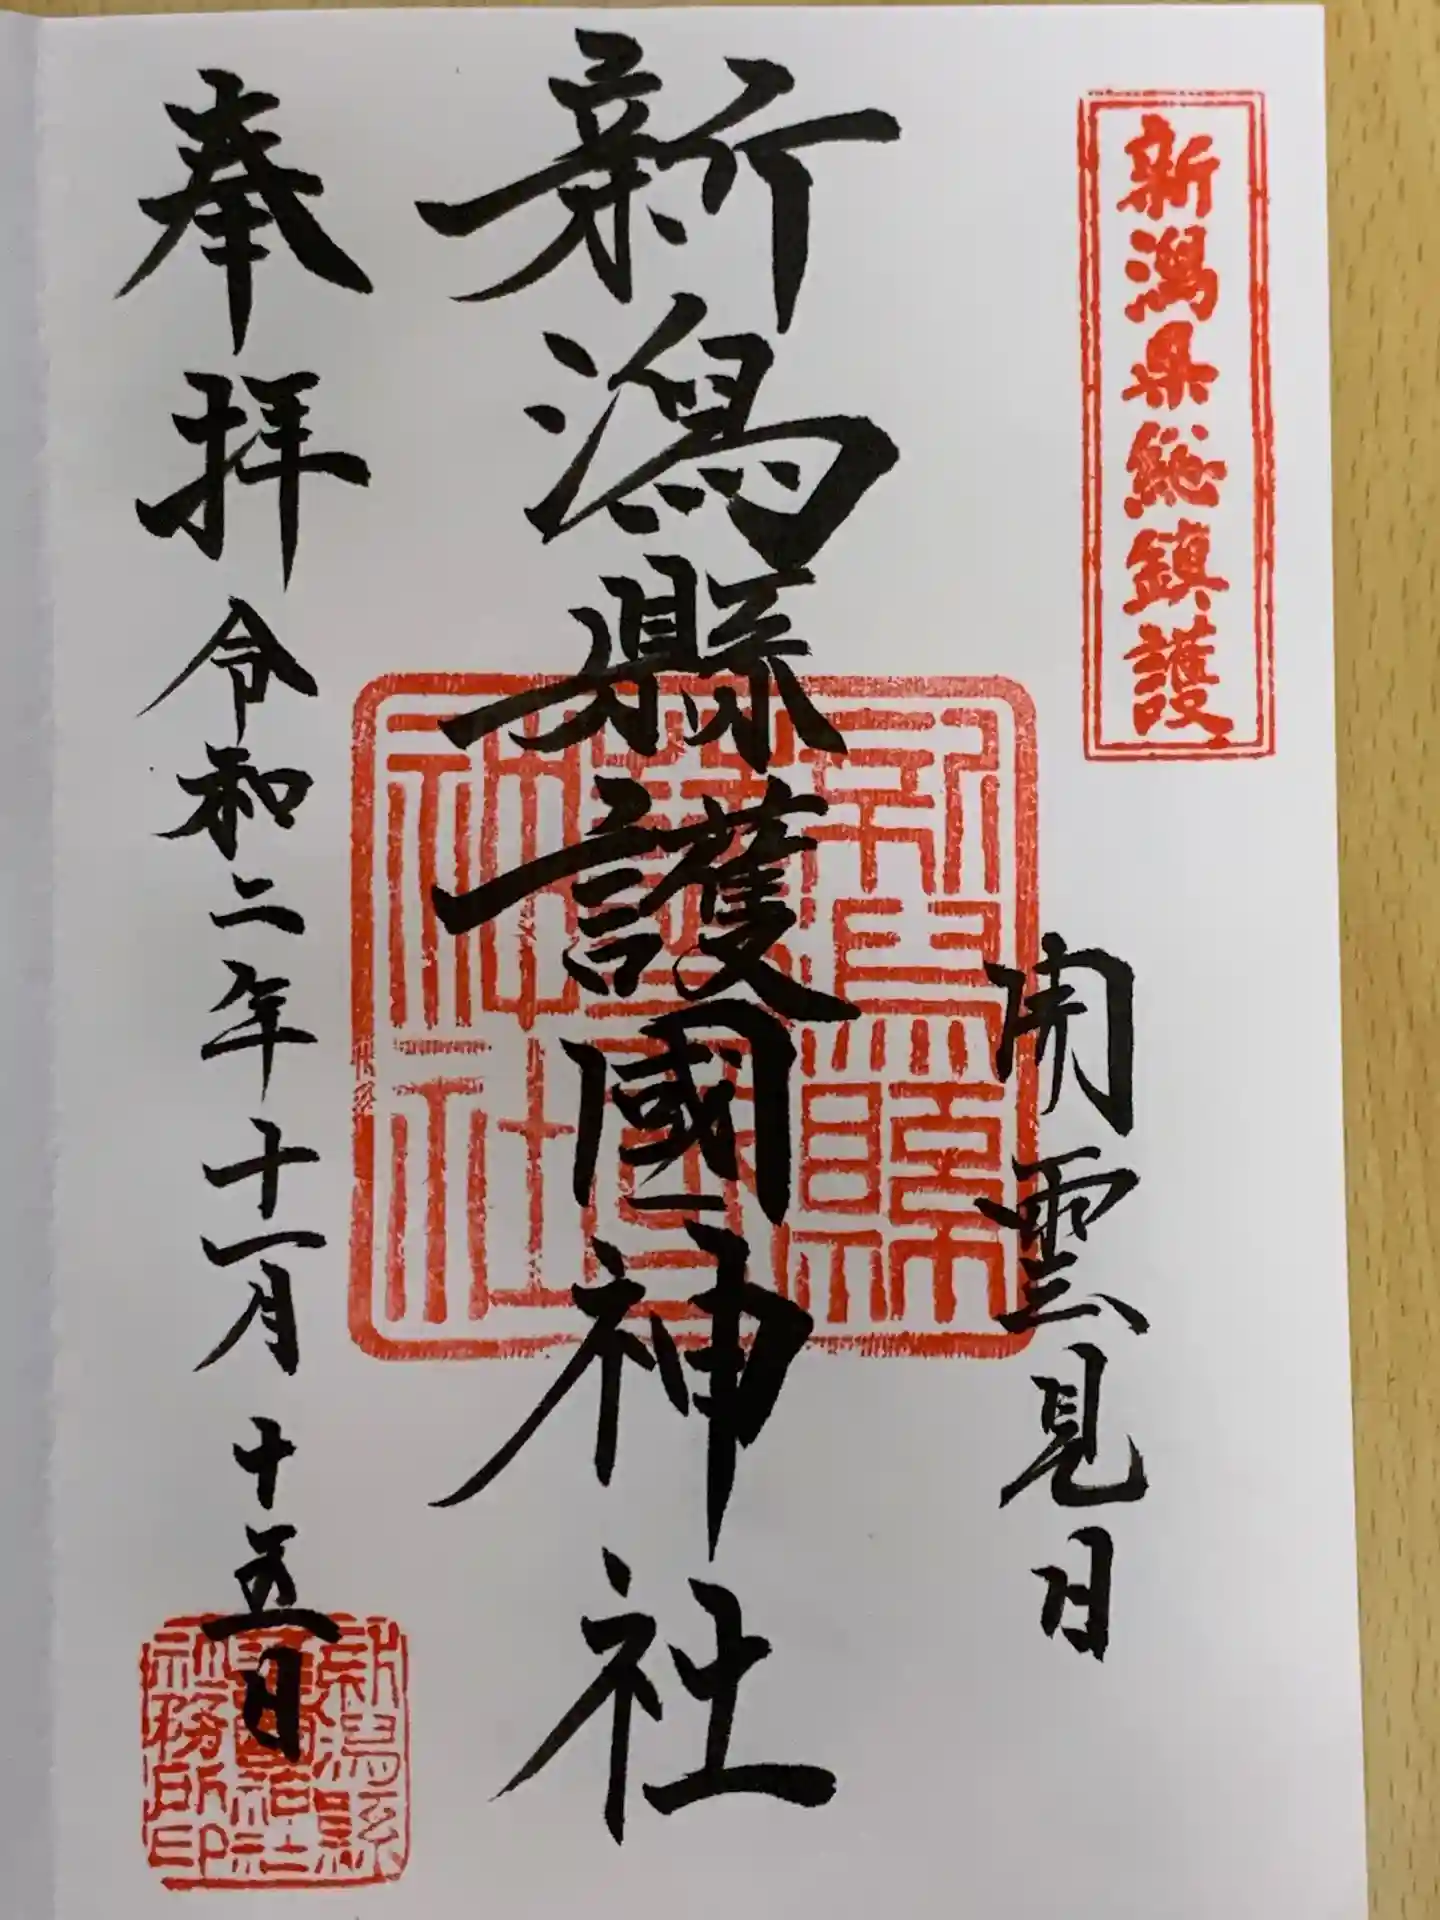 新潟県総鎮護
開雲見日
新潟縣護國神社
新潟縣護國神社
奉拝
令和二年十一月十五日
新潟縣護國神社社務所印